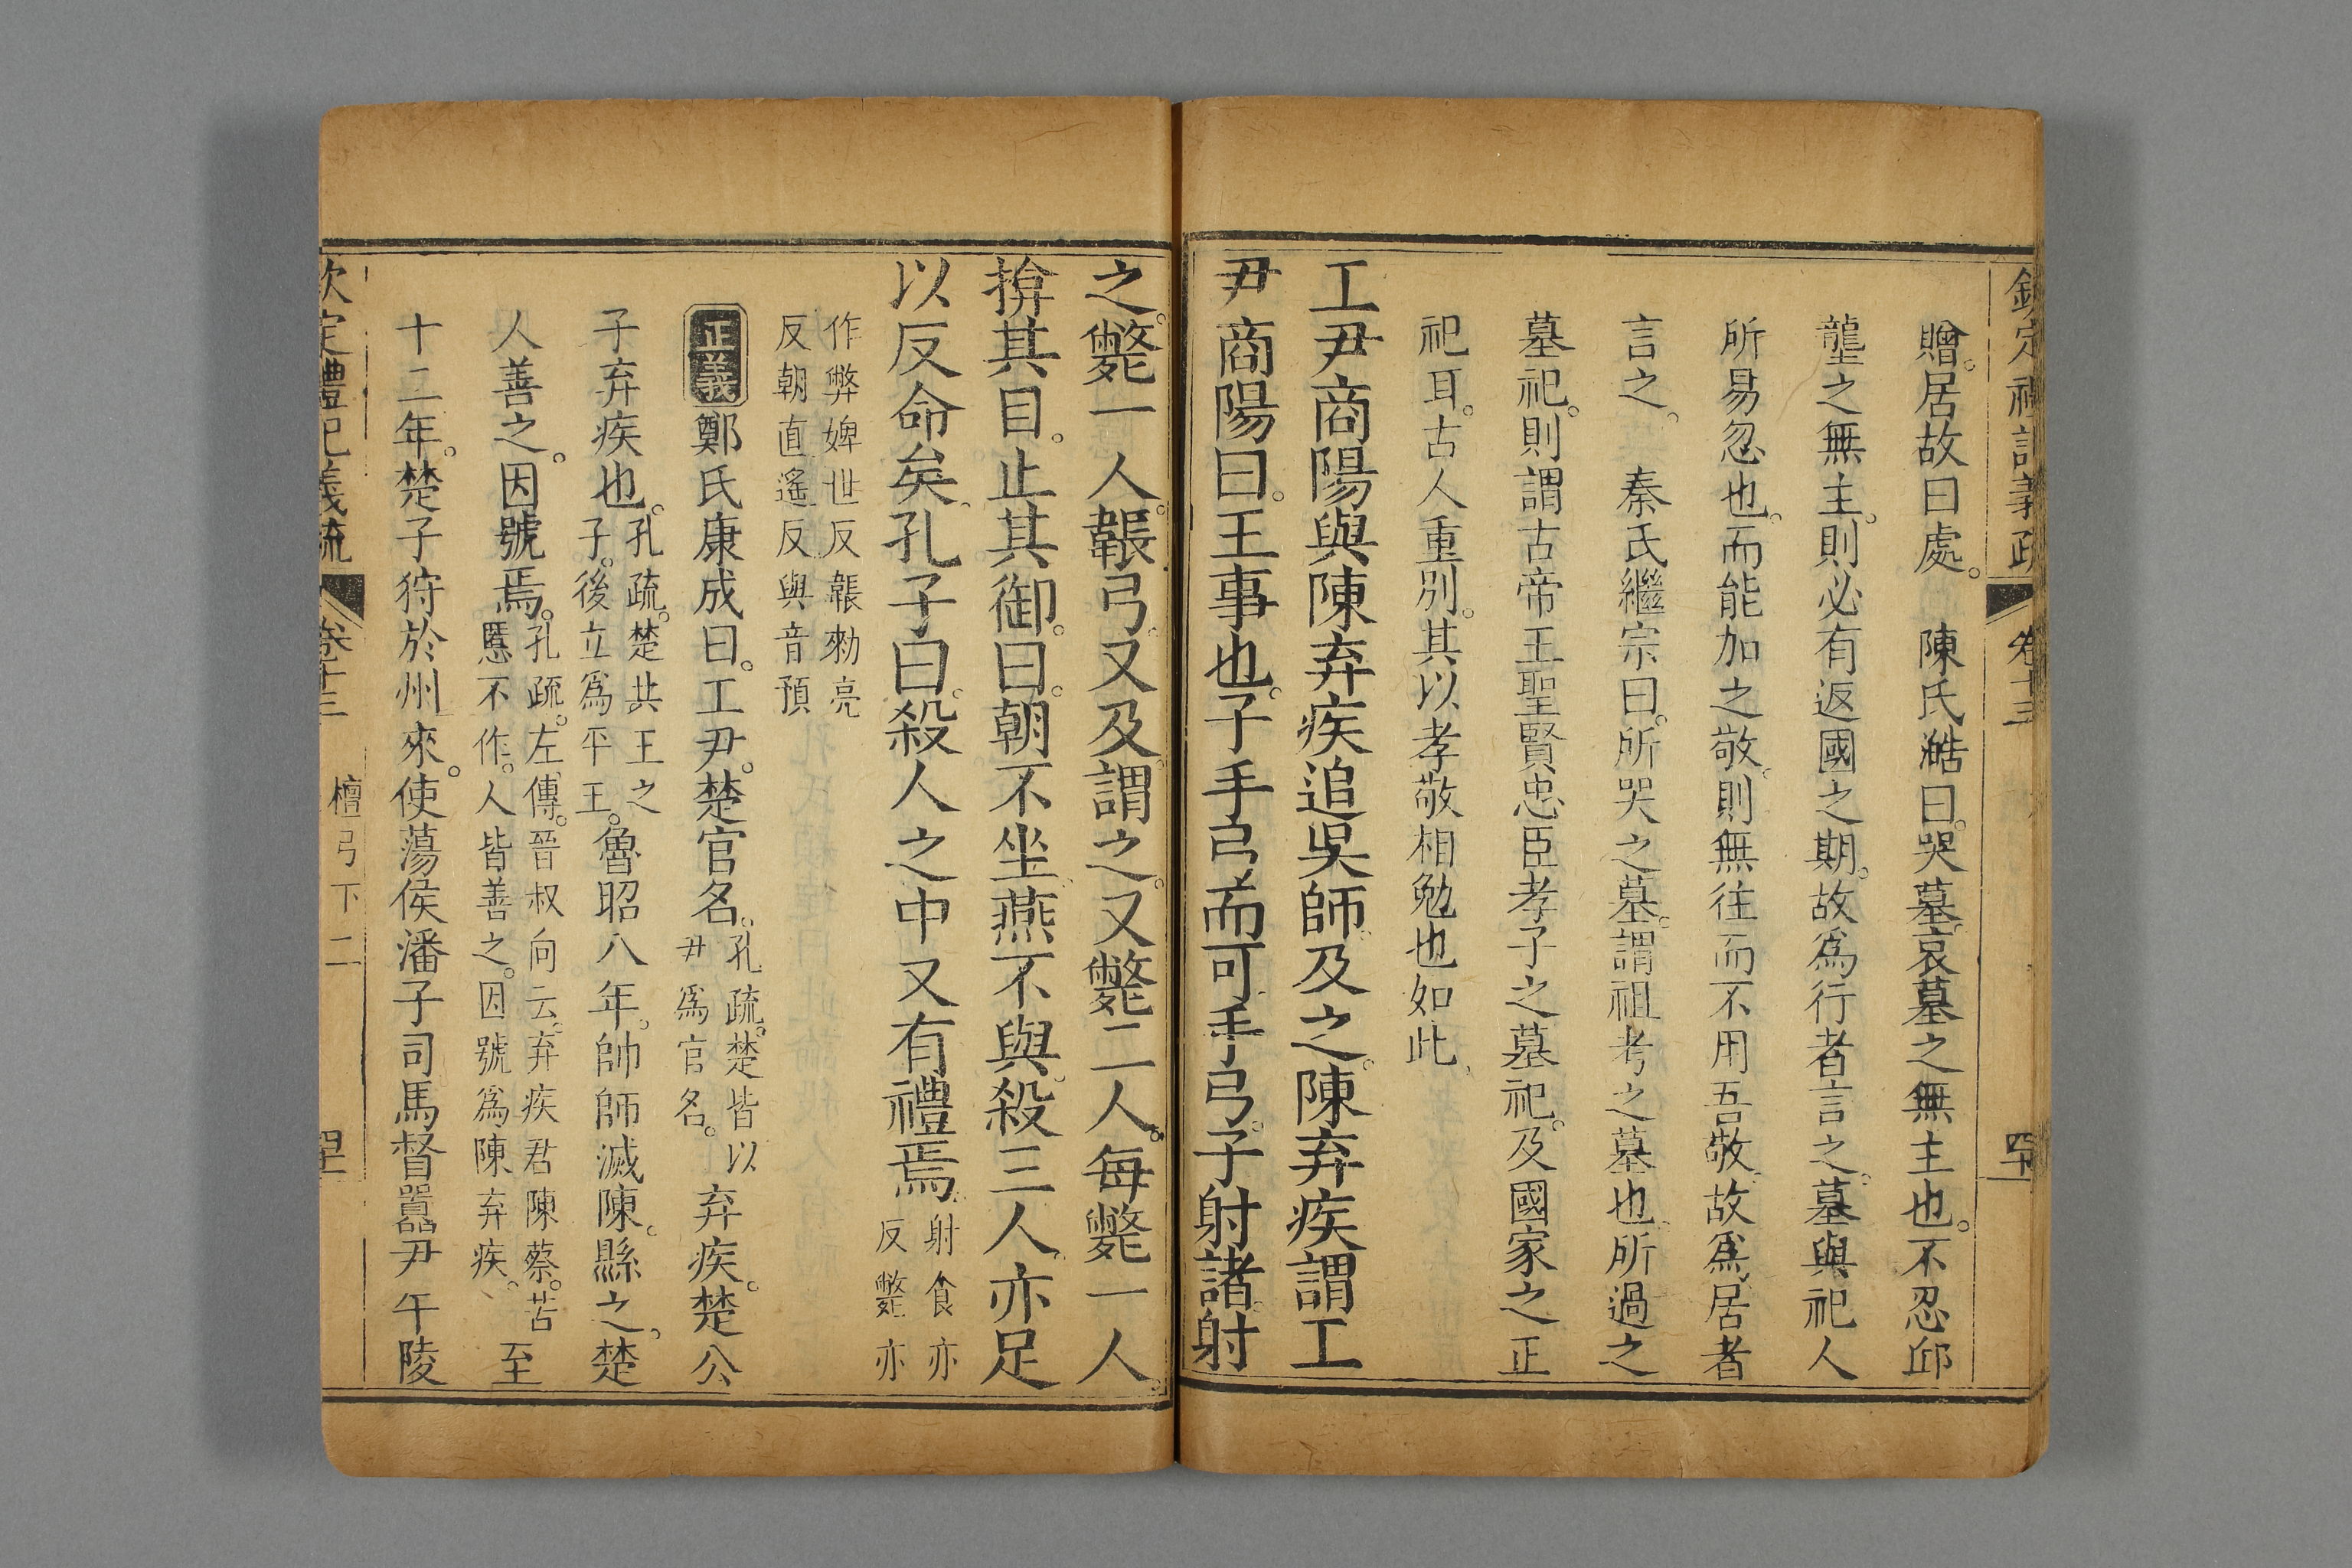 贈。居故曰處。　陳氏澔曰。哭墓。哀墓之無主也。不忍邱
壟之無主。則必有返國之期。故爲行者言之。墓與祀人
所易忽也。而能加之敬。則無往而不用吾敬。故爲居者
言之。　秦氏繼宗曰。所哭之墓。謂祖考之墓也。所過之
墓祀。則謂古帝王聖賢忠臣孝子之墓祀。及國家之正
祀耳。古人重別。其以孝敬相勉也如此。
工尹商陽與陳弃疾追吳師。及之。陳弃疾謂工
尹商陽曰。王事也。子手弓而可。手弓。子射諸。射
之。斃一人。韔弓。又及。謂之。又斃二人。每斃一人。
揜其目。止其御。曰。朝不坐。燕不與。殺三人。亦足
以反命矣。孔子曰。殺人之中。又有禮焉。射食亦
反斃亦
作弊婢世反韔勑亮
反朝直遙反與音預
正義鄭氏康成曰。工尹。楚官名。孔疏。楚皆以
尹爲官名。弃疾。楚公
子弃疾也。孔疏。楚共王之
子。後立爲平王。魯昭八年。帥師滅陳。縣之。楚
人善之。因號焉。孔疏。左傳。晉叔向云。弃疾君陳蔡。苦
慝不作。人皆善之。因號爲陳弃疾。至
十二年。楚子狩於州來。使蕩侯潘子司馬督嚻尹午陵
欽定禮記義疏 卷十三 檀弓下二
欽定禮記義疏 卷十三